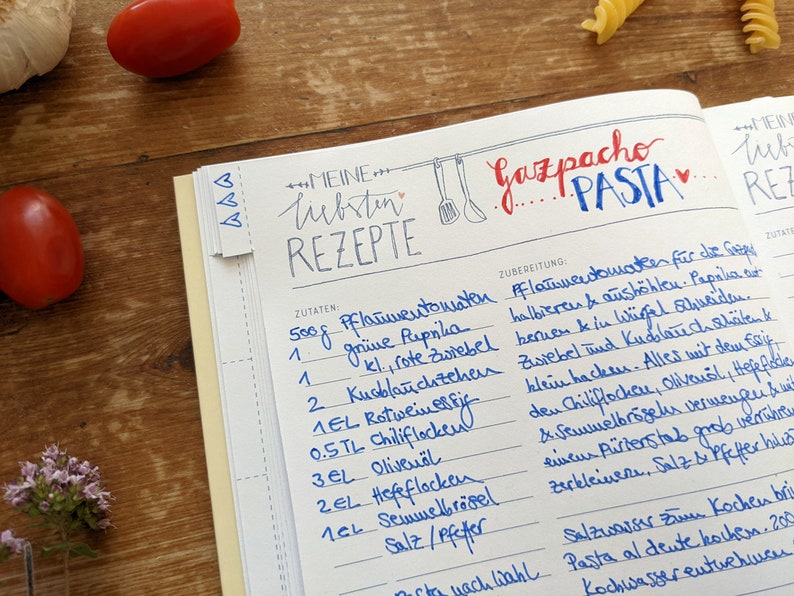 MEINE
liebsten
REZEPTE
Gazpacho
PASTA
ZUTATEN:
500g Pflaumentomaten
1 grüne Paprika
1 kl., rote Zwiebel
2 Knoblauchzehen
1 EL Rotweinessig
0.5 TL Chiliflocken
3 EL Olivenöl
2 EL Hefeflocken
1 EL Semmelbrösel
Salz / Pfeffer
Pasta nach Wahl
ZUBEREITUNG:
Pflaumentomaten für die
halbieren & aushöhlen. Paprika ent
kernen & in Würfel schneiden.
Zwiebel und Knoblauch schälen &
klein hacken. Alles mit dem Essig,
den Chiliflocken, Olivenöl, Hefeflocken
& Semmelbröseln vermengen & mit
einem Pürierstab grob
zerkleinern, Salz & Pfeffer
Salzwasser zum Kochen
Pasta al dente kochen. 200
Kochwasser entnehmen
MEINE
REZE
ZUTATEN: